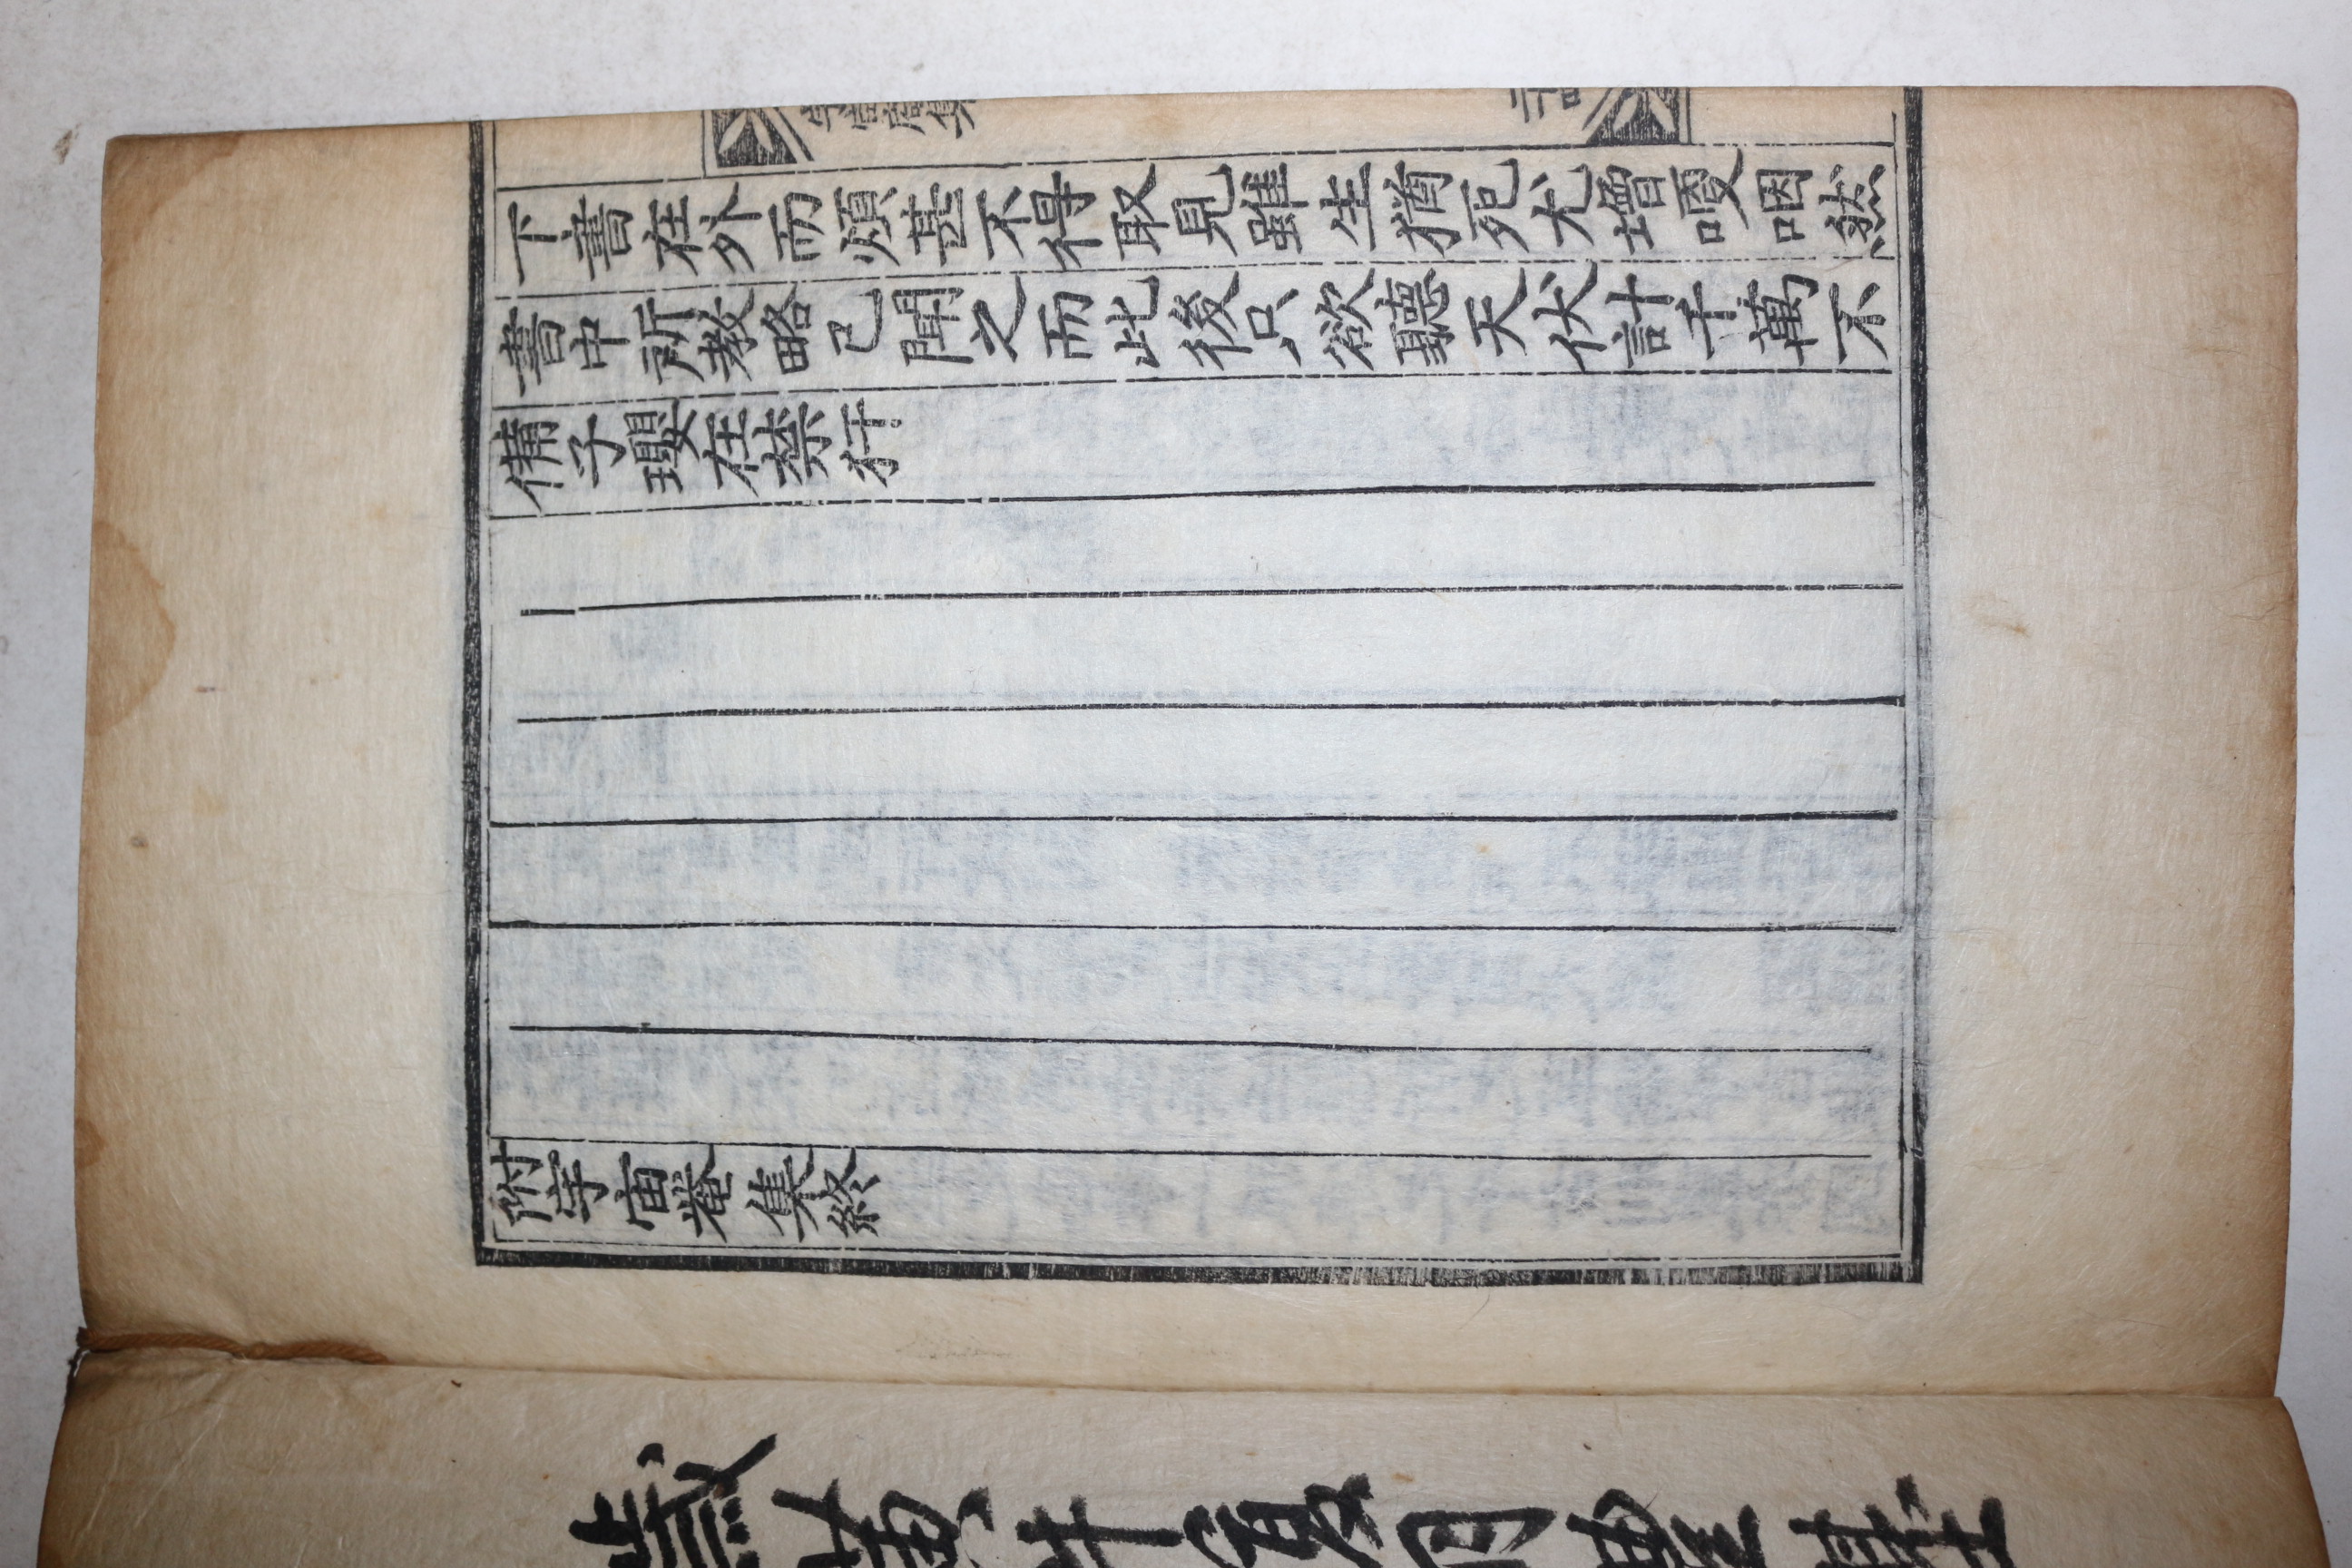 宇宙庵集
下書在外而煩甚不得取見雖生猶死尤增嗄咽然
書中所教略已聞之而此後只欲聽天伏計千萬不
備子瓔在禁犴
附宇宙菴集終
歲黃牛夏月豊基